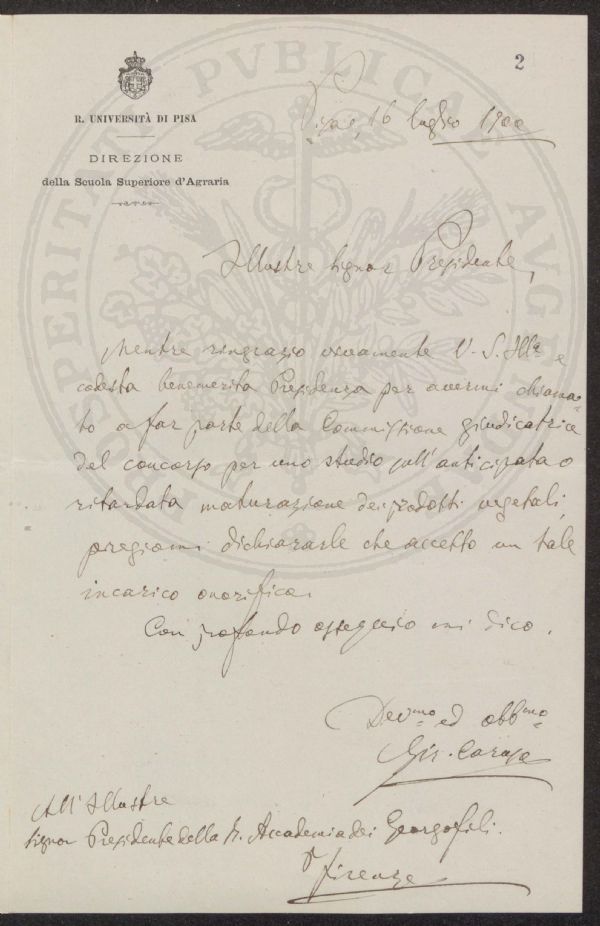 2
R. UNIVERSITÀ DI PISA
DIREZIONE
della Scuola Superiore d'Agraria
Pisa, 16 luglio 1900
Illustre Signor Presidente,
Mentre ringrazio vivamente V. S. Ill.ª e
codesta benemerita Presidenza per avermi chiama-
to a far parte della Commissione giudicatrice
del concorso per uno studio sull'anticipata o
ritardata maturazione dei prodotti vegetali,
pregiomi dichiararle che accetto un tale
incarico onorifico.
Con profondo ossequio mi dico.
Dev.mo ed obb.mo
Gir. Caruso
All'Illustre
Signor Presidente della R. Accademia dei Georgofili.
Firenze
PROSPERITATI PVBLICAE AVGENDAE